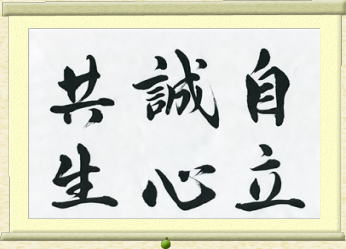 自立
誠心
共生